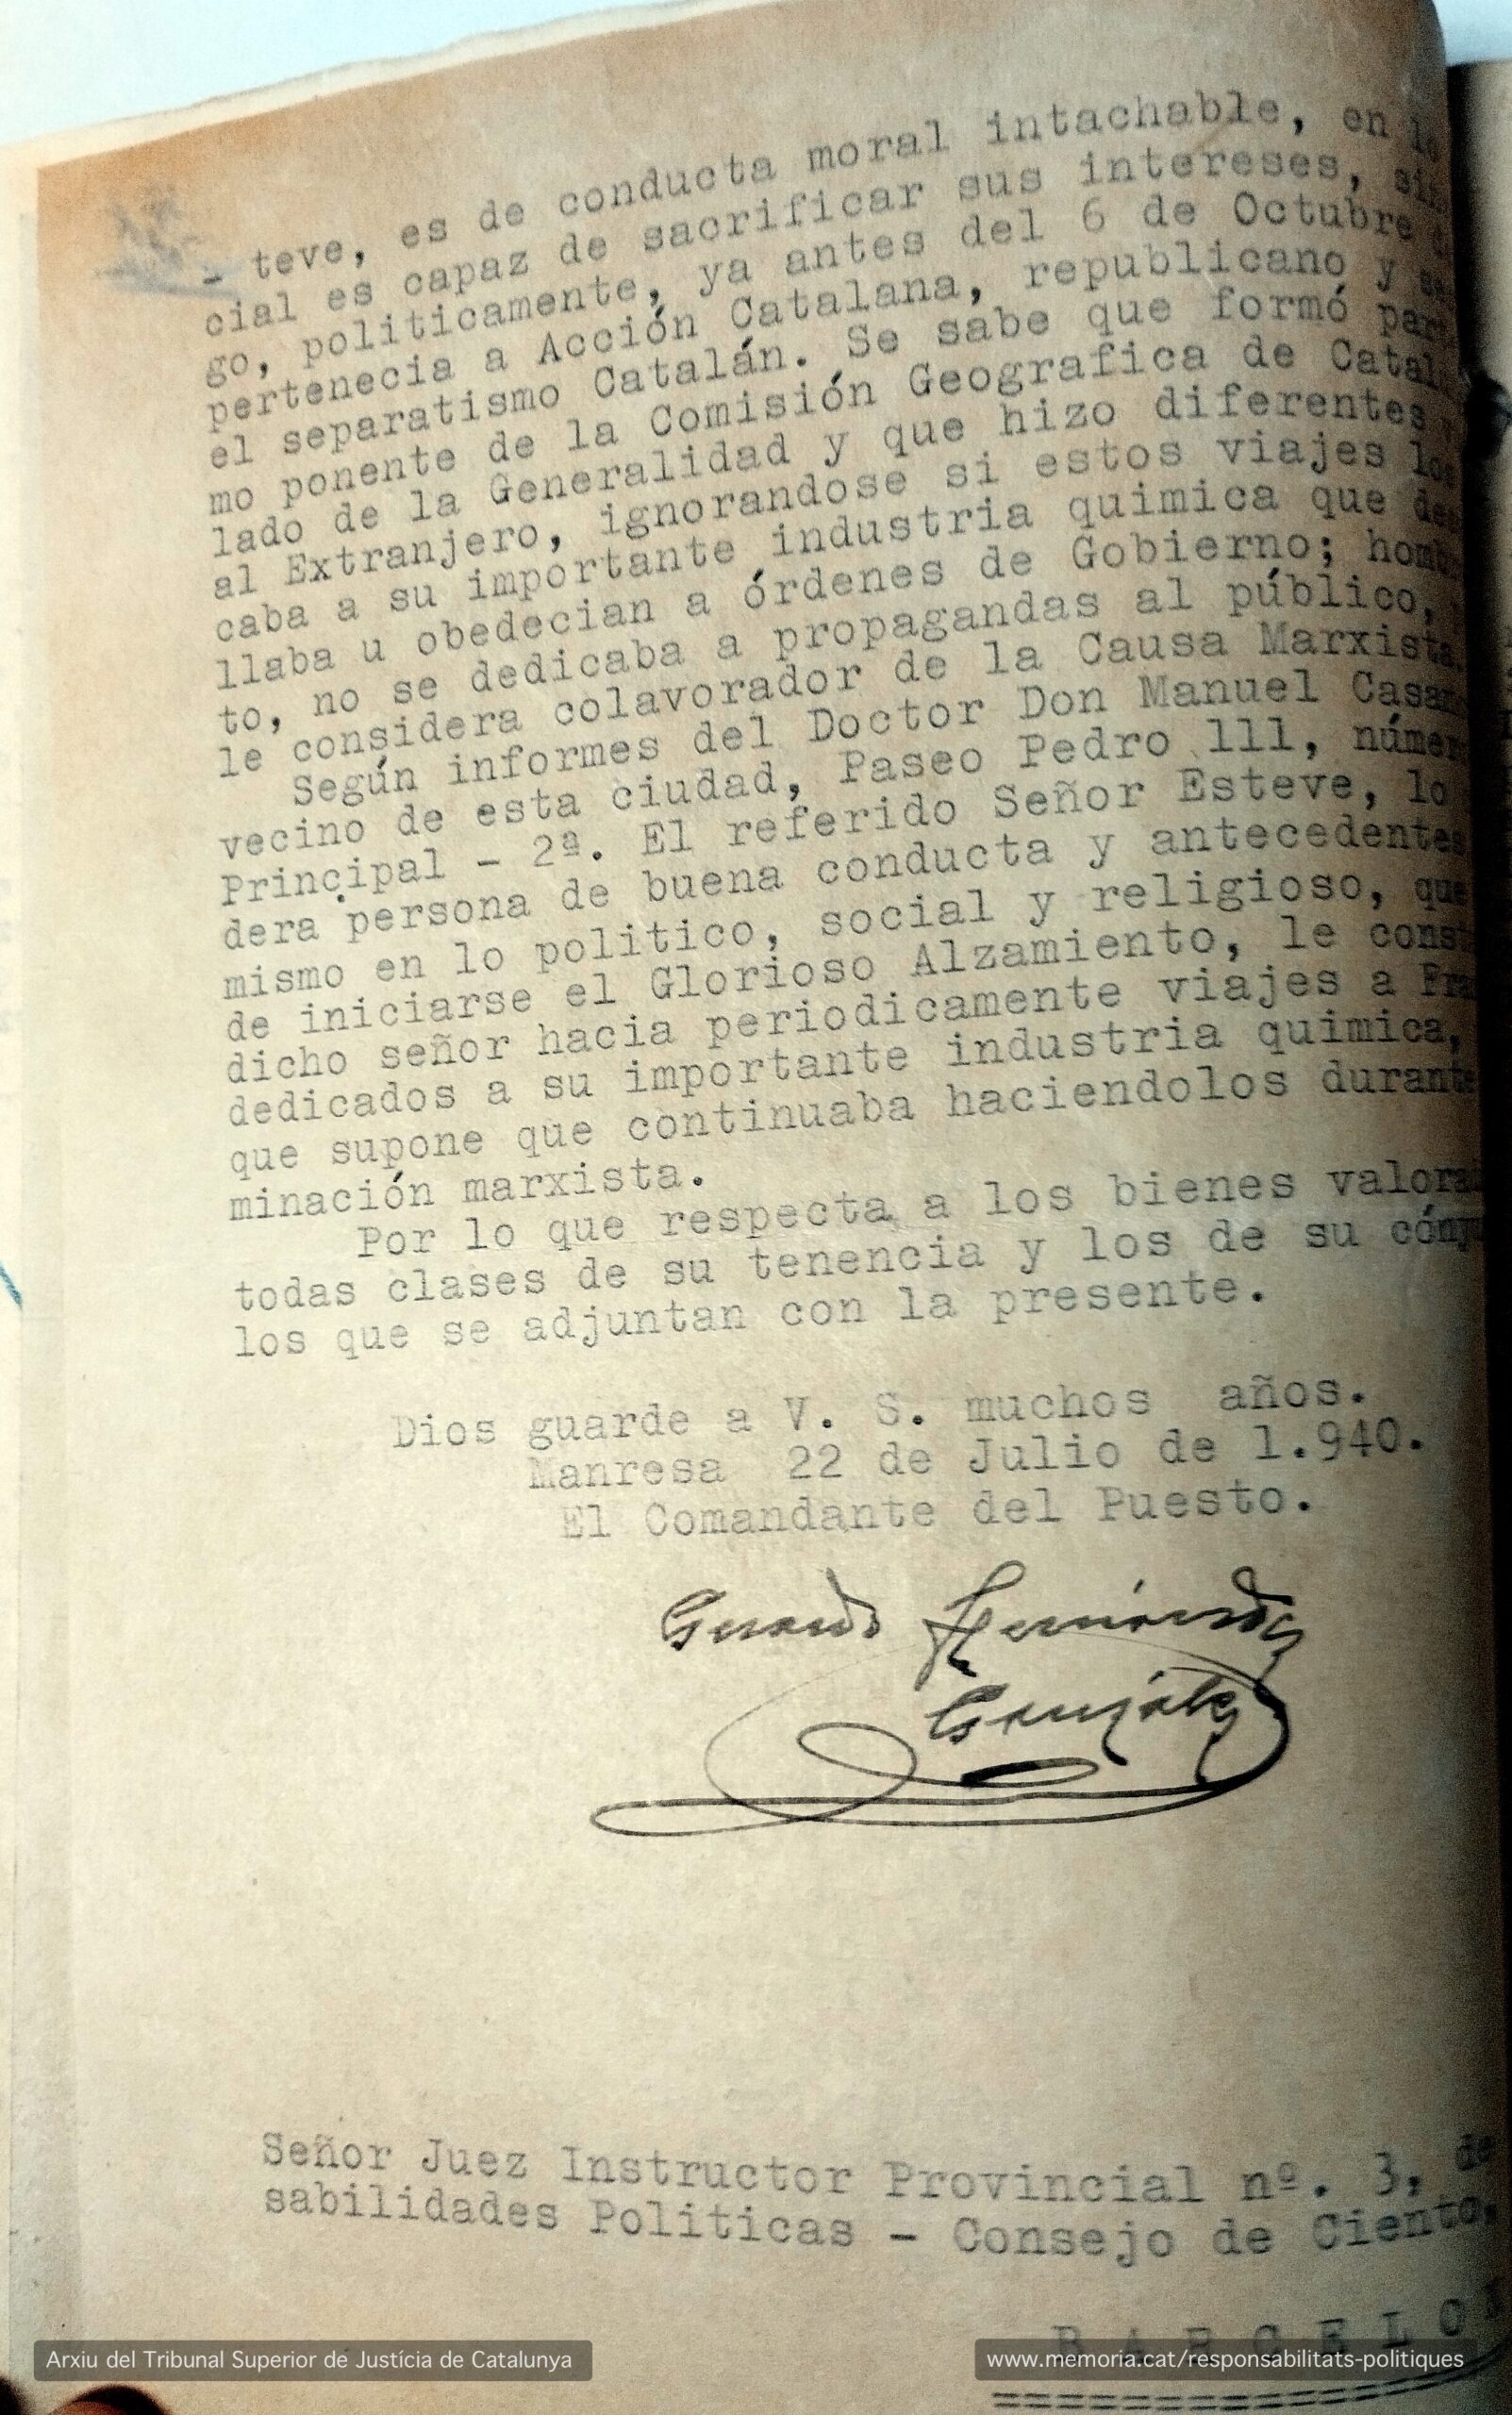 - teve, es de conducta moral intachable, en
cial es capaz de sacrificar sus intereses,
go, politicamente, ya antes del 6 de Octubre
pertenecia a Acción Catalana, republicano y
el separatismo Catalán. Se sabe que formó
mo ponente de la Comisión Geografica de
lado de la Generalidad y que hizo diferentes
al Extranjero, ignorandose si estos viajes
caba a su importante industria quimica que
llaba u obedecian a órdenes de Gobierno;
to, no se dedicaba a propagandas al público,
le considera colavorador de la Causa Marxista
Según informes del Doctor Don Manuel
vecino de esta ciudad, Paseo Pedro 111,
Principal - 2ª. El referido Señor Esteve, lo
dera persona de buena conducta y antecedentes
mismo en lo politico, social y religioso, que
de iniciarse el Glorioso Alzamiento, le
dicho señor hacia periodicamente viajes a
dedicados a su importante industria quimica,
que supone que continuaba haciendolos durante
minación marxista.
Por lo que respecta a los bienes
todas clases de su tenencia y los de su
los que se adjuntan con la presente.
Dios guarde a V. S. muchos años.
Manresa 22 de Julio de 1.940.
El Comandante del Puesto.
Gerardo Hernández
González
Señor Juez Instructor Provincial nº. 3, de
sabilidades Politicas - Consejo de Ciento,
B A R C E L O
Arxiu del Tribunal Superior de Justícia de Catalunya
www.memoria.cat/responsabilitats-politiques